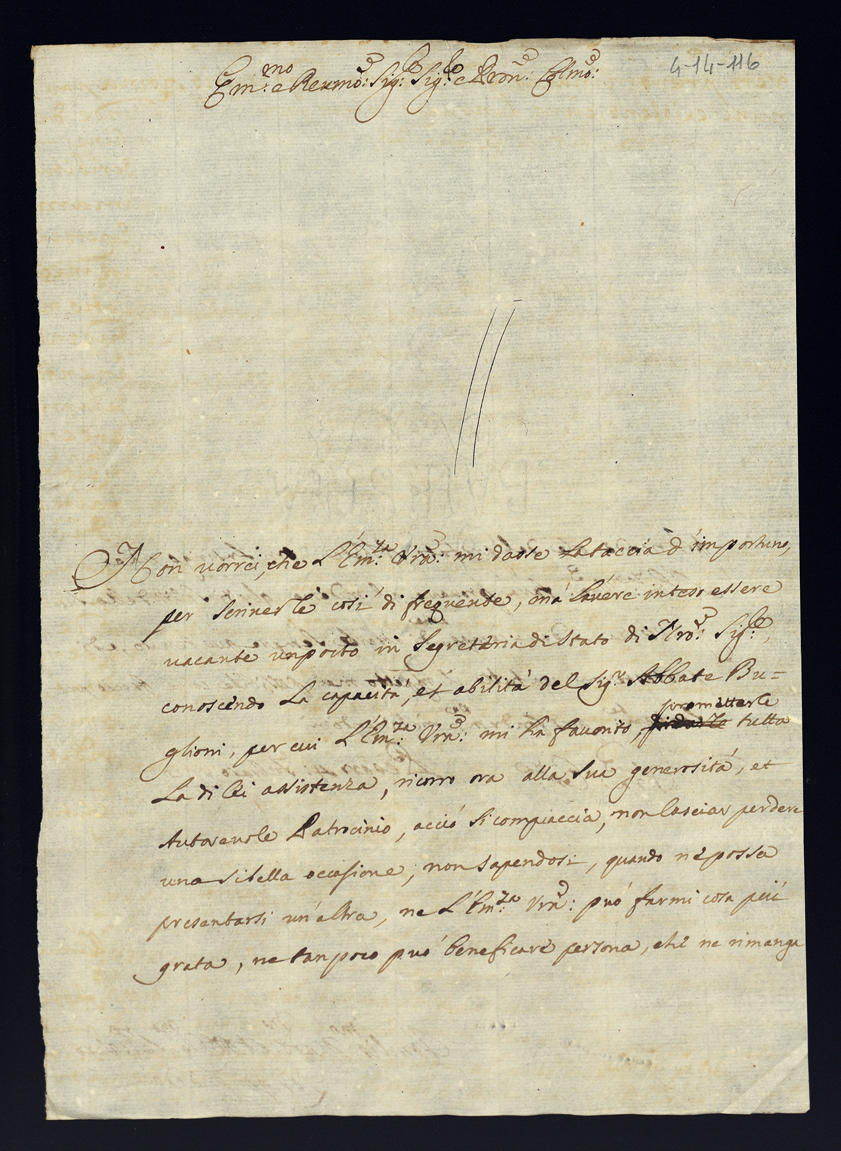 4-14-116
Em.mo e Revmo: Sig.e Sig.e e Pron.e Colmo:
Non vorrei, che L'Em.za Vra: mi dasse la taccia d'importuno,
per scriverle così di frequente, má l'avere inteso essere
vacante un posto in Segreteria di Stato di Nro: Sig.e,
conoscendo La capacità, et abilità del Sig.r Abbate Bu=
glioni, per cui L'Em.za Vra: mi hà favorito, promettere tutta
La di lei assistenza, ricorro ora alla sua generosità, et
Autorevole Patrocinio, acciò si compiaccia, non lasciar perdere
una sì bella occasione, non sapendosi, quando ne possa
presentarsi un'altra, ne L'Em.za Vra: può farmi cosa più
grata, ne tan poco può beneficare persona, che ne rimanga